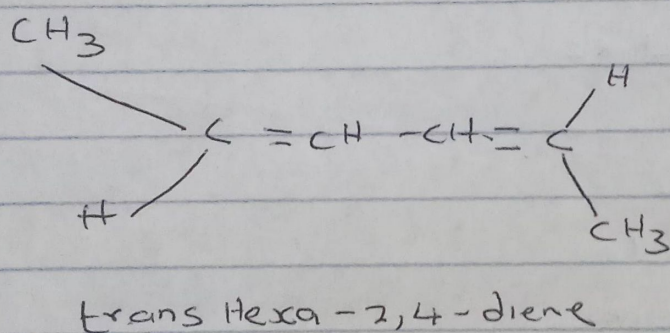 CH3
H
C = CH - CH = C
H
CH3
trans Hexa - 2,4 - diene